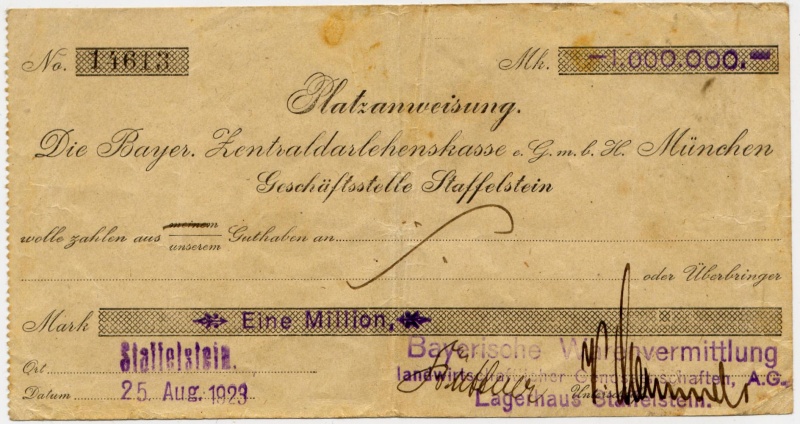 No. 14613 Mk. —1.000.000.—
Platzanweisung.
Die Bayer. Zentraldarlehenskasse e. G. m. b. H. München
Geschäftsstelle Staffelstein
wolle zahlen aus meinem
unserem Guthaben an
oder Überbringer
Mark Eine Million,
Ort Staffelstein.
Datum 25. Aug. 1923
Bayerische Warenvermittlung
landwirtschaftlicher Genossenschaften, A.G.
Lagerhaus Staffelstein.